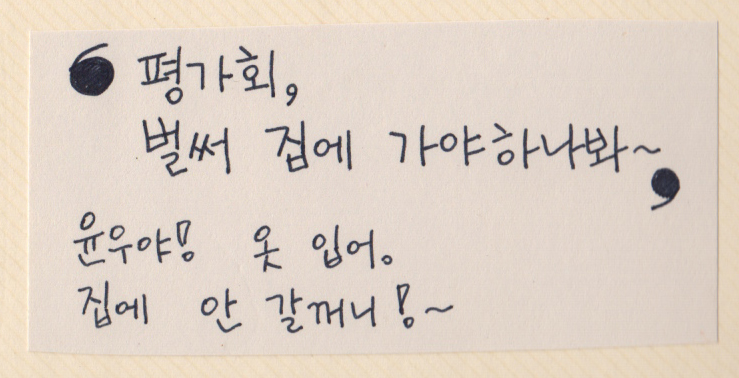 ❛ 평가회,
벌써 집에 가야하나봐~ ❜
윤우야! 옷 입어.
집에 안 갈꺼니!~